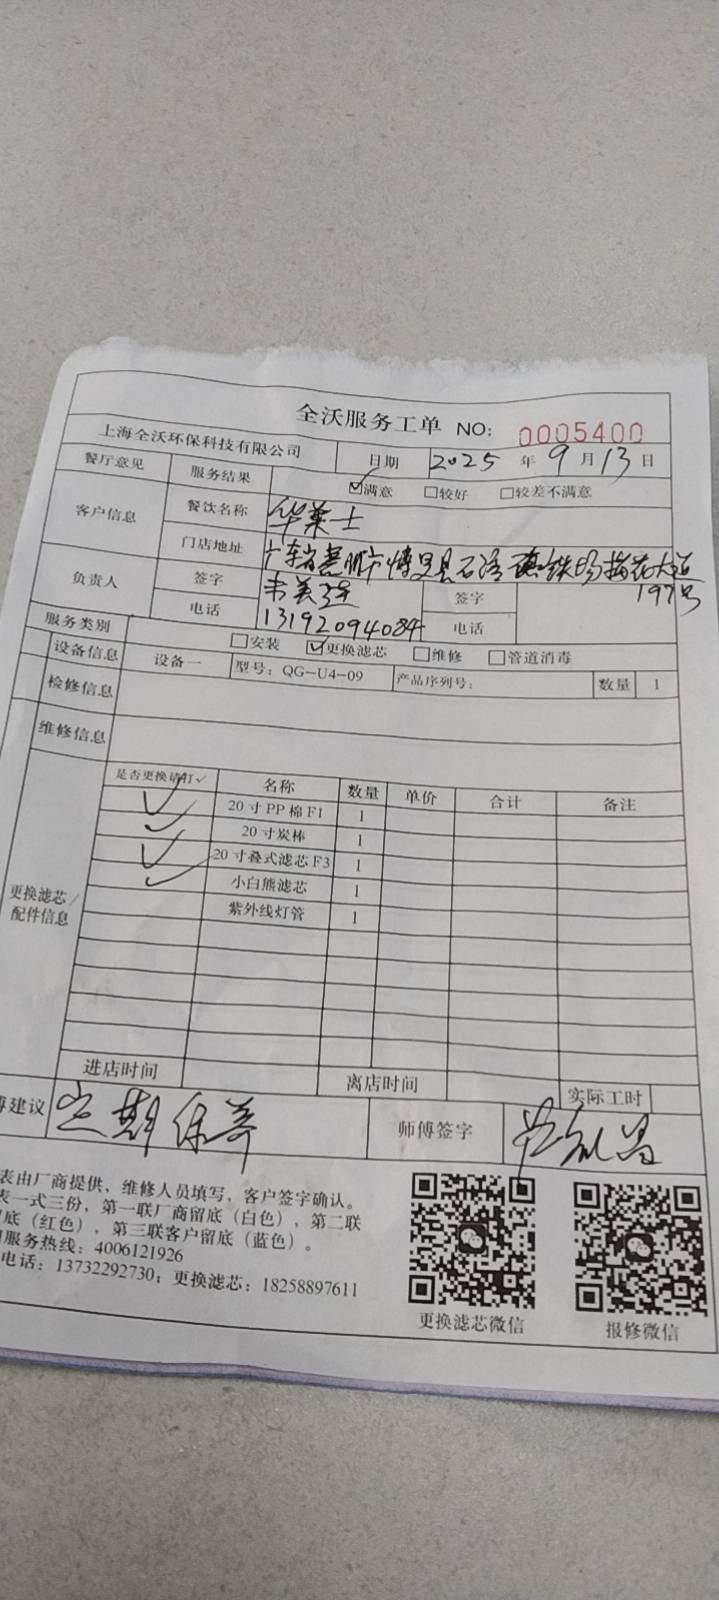 全沃服务工单 NO: 0005400
上海全沃环保科技有限公司 日期 2025 年 9 月 13 日
餐厅意见 服务结果 ☑满意 □较好 □较差不满意
客户信息 餐饮名称 华莱士
门店地址 广东省惠州市博罗县石湾镇铁场梅花大道
197号
负责人 签字 签字
电话 13192094084 电话
服务类别 □安装 ☑更换滤芯 □维修 □管道消毒
设备信息 设备一 型号: QG-U4-09 产品序列号: 数量 1
检修信息
维修信息
更换滤芯/
配件信息
是否更换请打✓ 名称 数量 单价 合计 备注
✓ 20寸PP棉F1 1
✓ 20寸炭棒 1
✓ 20寸叠式滤芯F3 1
✓ 小白熊滤芯 1
紫外线灯管 1
进店时间 离店时间 实际工时
建议 定期保养 师傅签字
表由厂商提供，维修人员填写，客户签字确认。
表一式三份，第一联厂商留底（白色），第二联
留底（红色），第三联客户留底（蓝色）。
服务热线: 4006121926
电话: 13732292730; 更换滤芯: 18258897611
更换滤芯微信 报修微信